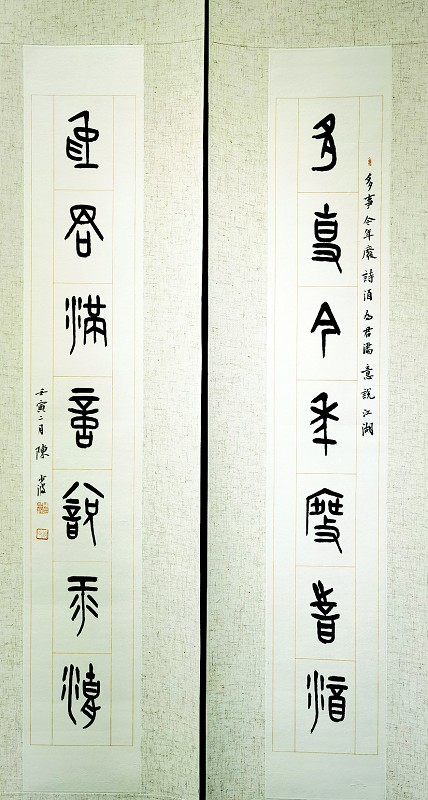 多事今年廢詩酒为君滿意說江湖
多事今年廢詩酒
為君滿意說江湖
壬寅二月陳